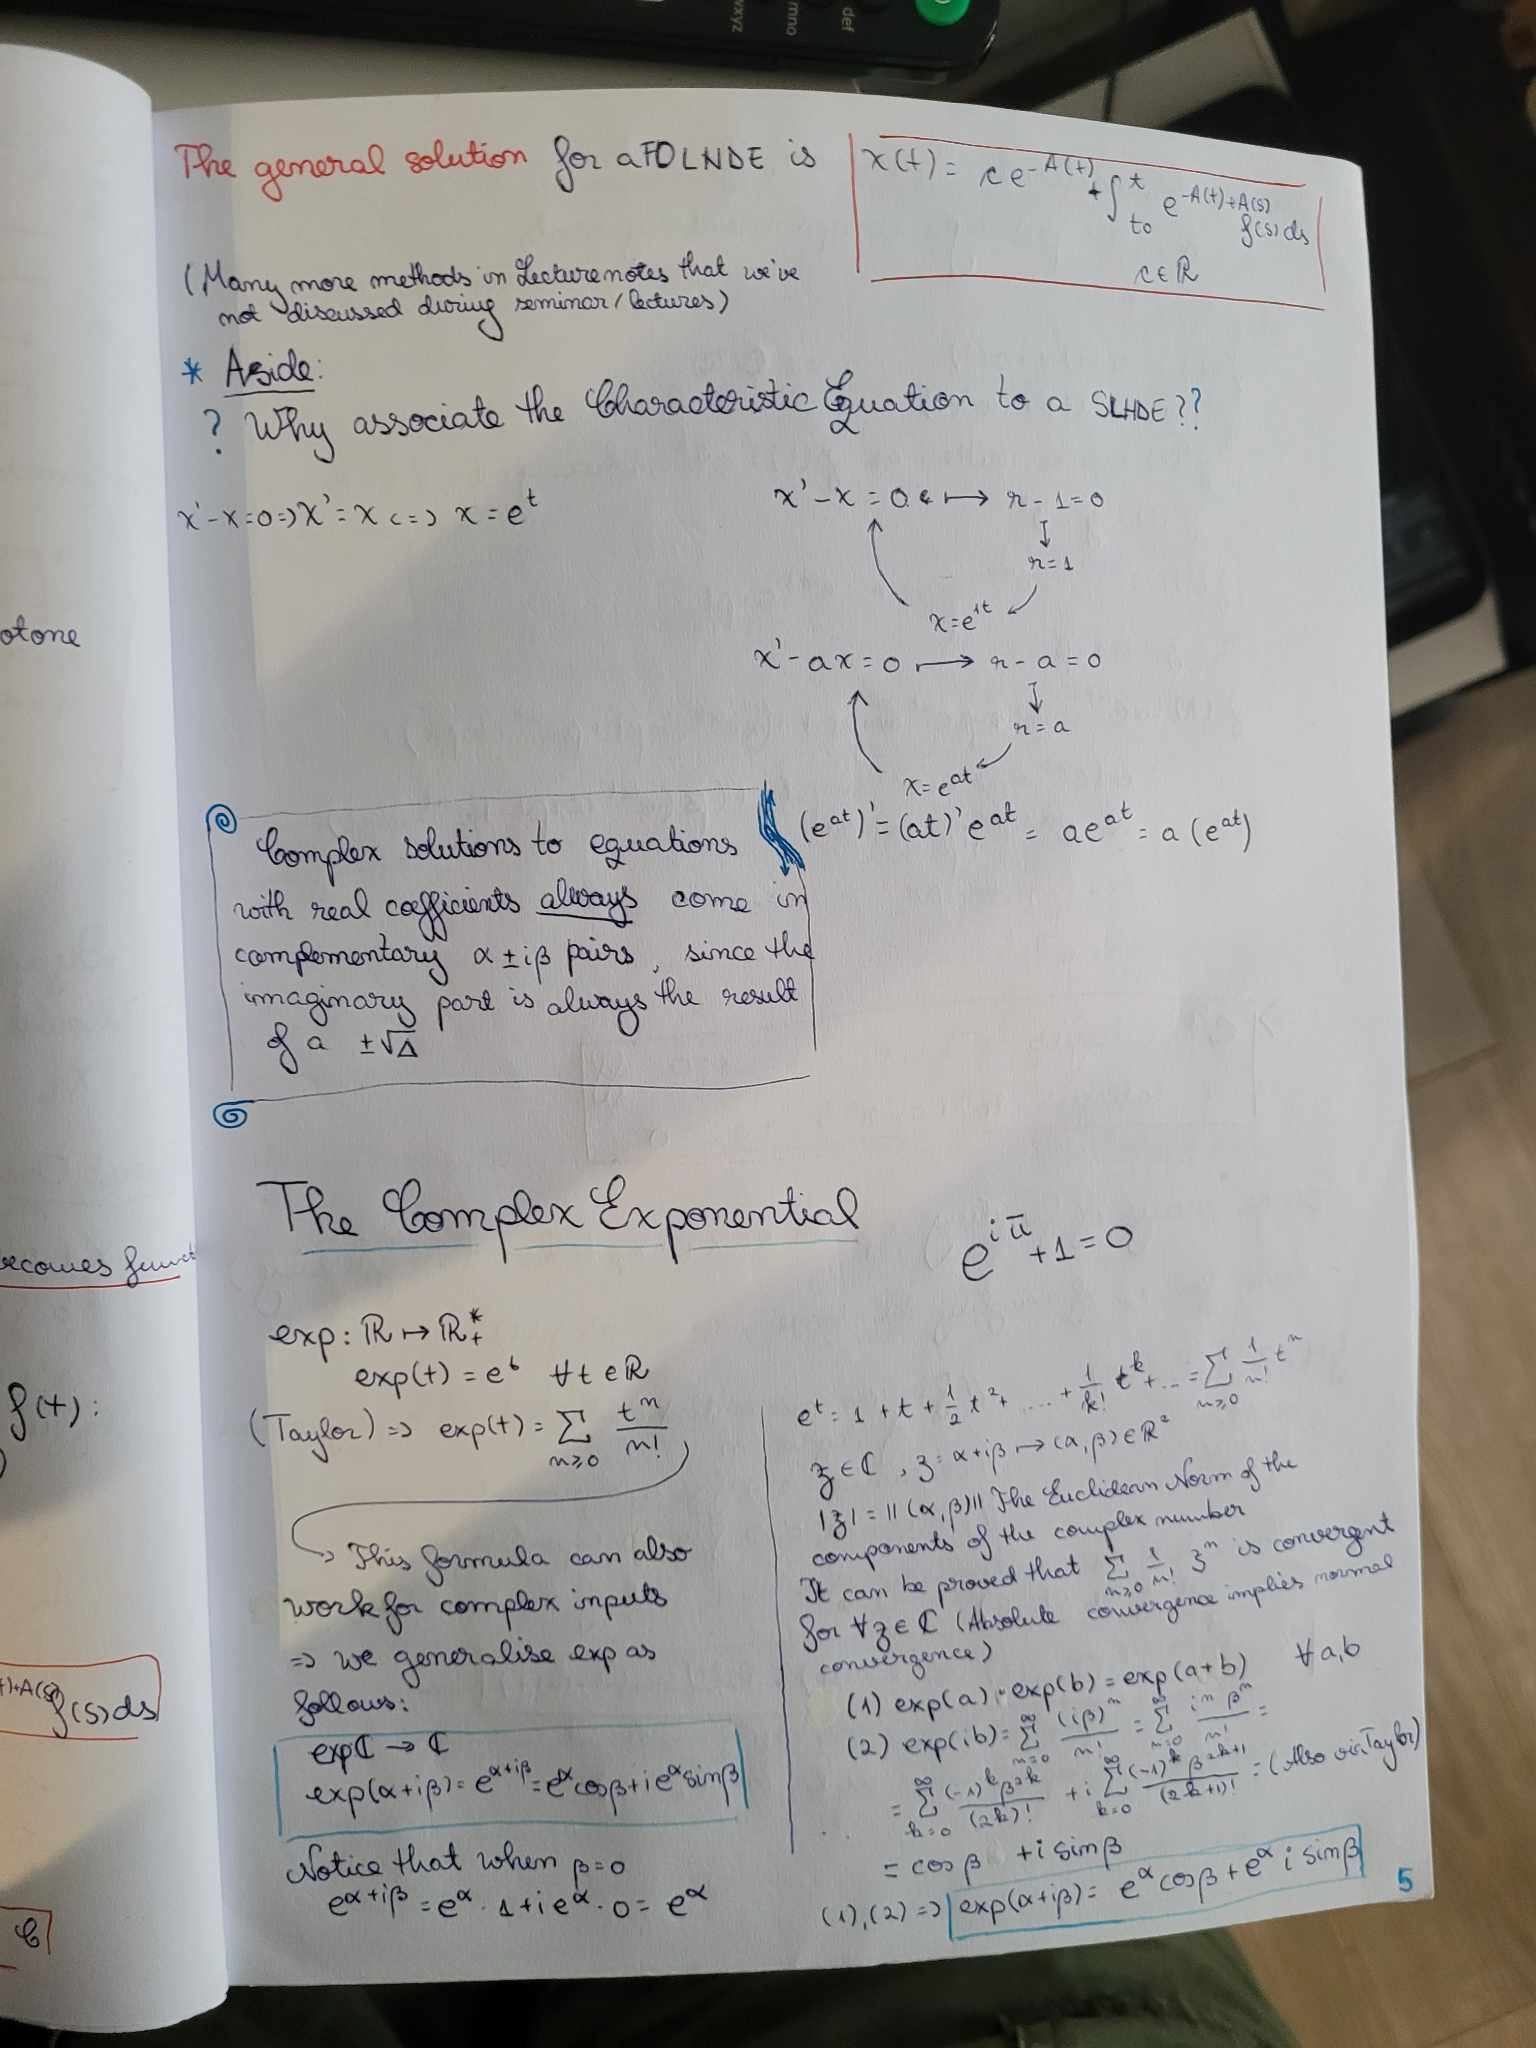 wxyz
mno
def
The general solution for a FOLNDE is
x(t) = c e^{-A(t)} + ∫_{t0}^{t} e^{-A(t)+A(s)} f(s) ds
c ∈ ℝ
(Many more methods in Lecture notes that we've
not discussed during seminar/lectures)
* Aside:
? Why associate the Characteristic Equation to a SLHDE??
x'-x=0 => x'=x <=> x=e^t
x'-x=0 ↦ r-1=0
↓
r=1
x=e^{1t}
x'-ax=0 ↦ r-a=0
↓
r=a
x=e^{at}
(e^{at})'=(at)'e^{at} = ae^{at} = a(e^{at})
Complex solutions to equations
with real coefficients always come in
complementary α±iβ pairs, since the
imaginary part is always the result
of a ±√Δ
The Complex Exponential
e^{iπ}+1=0
exp: ℝ ↦ ℝ*₊
exp(t) = e^t ∀t∈ℝ
(Taylor) => exp(t) = ∑_{n≥0} t^n/n!
→ This formula can also
work for complex inputs
=> we generalise exp as
follows:
exp ℂ → ℂ
exp(α+iβ)=e^{α+iβ}=e^α cosβ+ie^α sinβ
Notice that when β=0
e^{α+iβ} = e^α · 1 + i e^α · 0 = e^α
e^t = 1 + t + 1/2 t² + ... + 1/k! t^k + ... = ∑_{n≥0} 1/n! t^n
z∈ℂ, z=α+iβ ↦ (α,β)∈ℝ²
|z| = ||(α,β)|| The Euclidean Norm of the
components of the complex number
It can be proved that ∑_{n≥0} 1/n! z^n is convergent
for ∀z∈ℂ (Absolute convergence implies normal
convergence)
(1) exp(a)·exp(b)=exp(a+b) ∀a,b
(2) exp(ib)= ∑_{n=0}^{∞} (iβ)^n/n! = ∑_{n=0}^{∞} i^n β^n/n! =
= ∑_{k=0}^{∞} (-1)^k β^{2k}/(2k)! + i ∑_{k=0}^{∞} (-1)^k β^{2k+1}/(2k+1)! = (Also via Taylor)
= cosβ + i sinβ
(1),(2) => exp(α+iβ) = e^α cosβ + e^α i sinβ
5
otone
becomes funct
f(t):
)
t)+A(s) f(s)ds
C